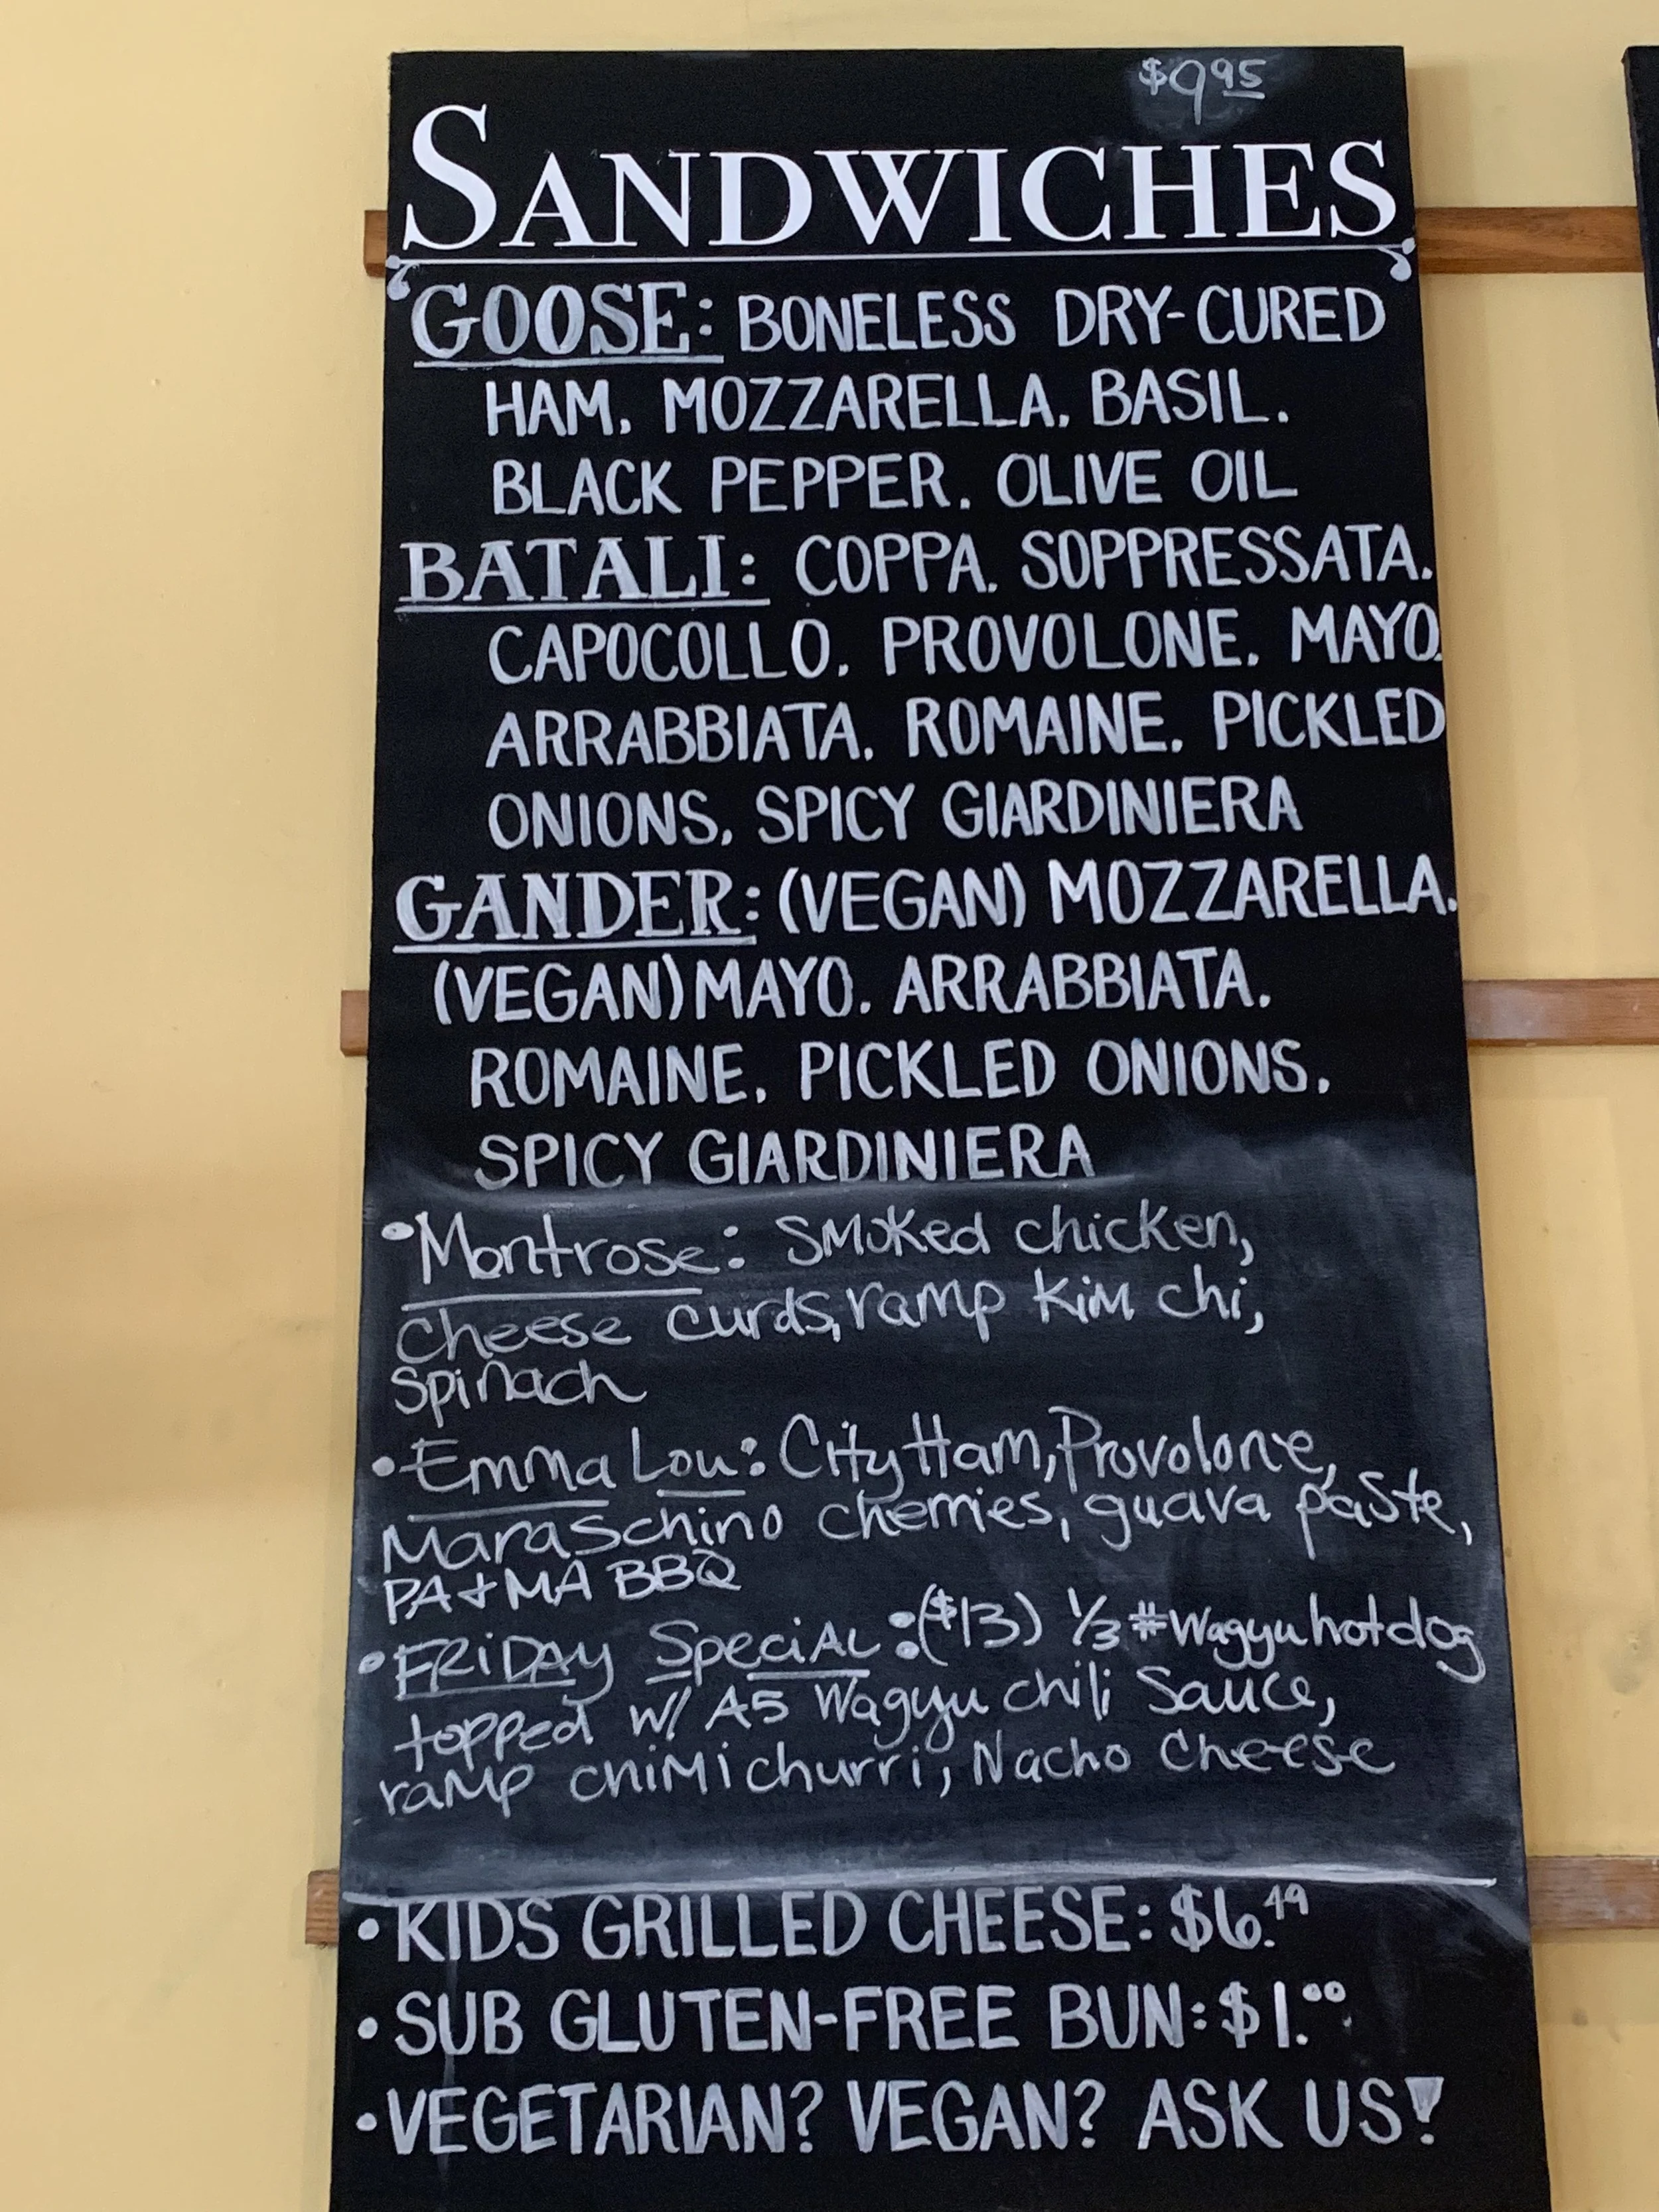 $9.95
SANDWICHES
GOOSE: BONELESS DRY-CURED
HAM, MOZZARELLA, BASIL,
BLACK PEPPER, OLIVE OIL
BATALI: COPPA, SOPPRESSATA,
CAPOCOLLO, PROVOLONE, MAYO,
ARRABBIATA, ROMAINE, PICKLED
ONIONS, SPICY GIARDINIERA
GANDER: (VEGAN) MOZZARELLA,
(VEGAN) MAYO, ARRABBIATA,
ROMAINE, PICKLED ONIONS,
SPICY GIARDINIERA
• Montrose: Smoked chicken,
cheese curds, ramp Kim chi,
Spinach
• Emma Lou: City Ham, Provolone,
Maraschino cherries, guava paste,
PA + MA BBQ
• FRIDAY SpeciAL: ($13) 1/3 # Wagyu hotdog
topped w/ A5 Wagyu chili Sauce,
ramp chimichurri, Nacho Cheese
• KIDS GRILLED CHEESE: $6.49
• SUB GLUTEN-FREE BUN: $1.00
• VEGETARIAN? VEGAN? ASK US!